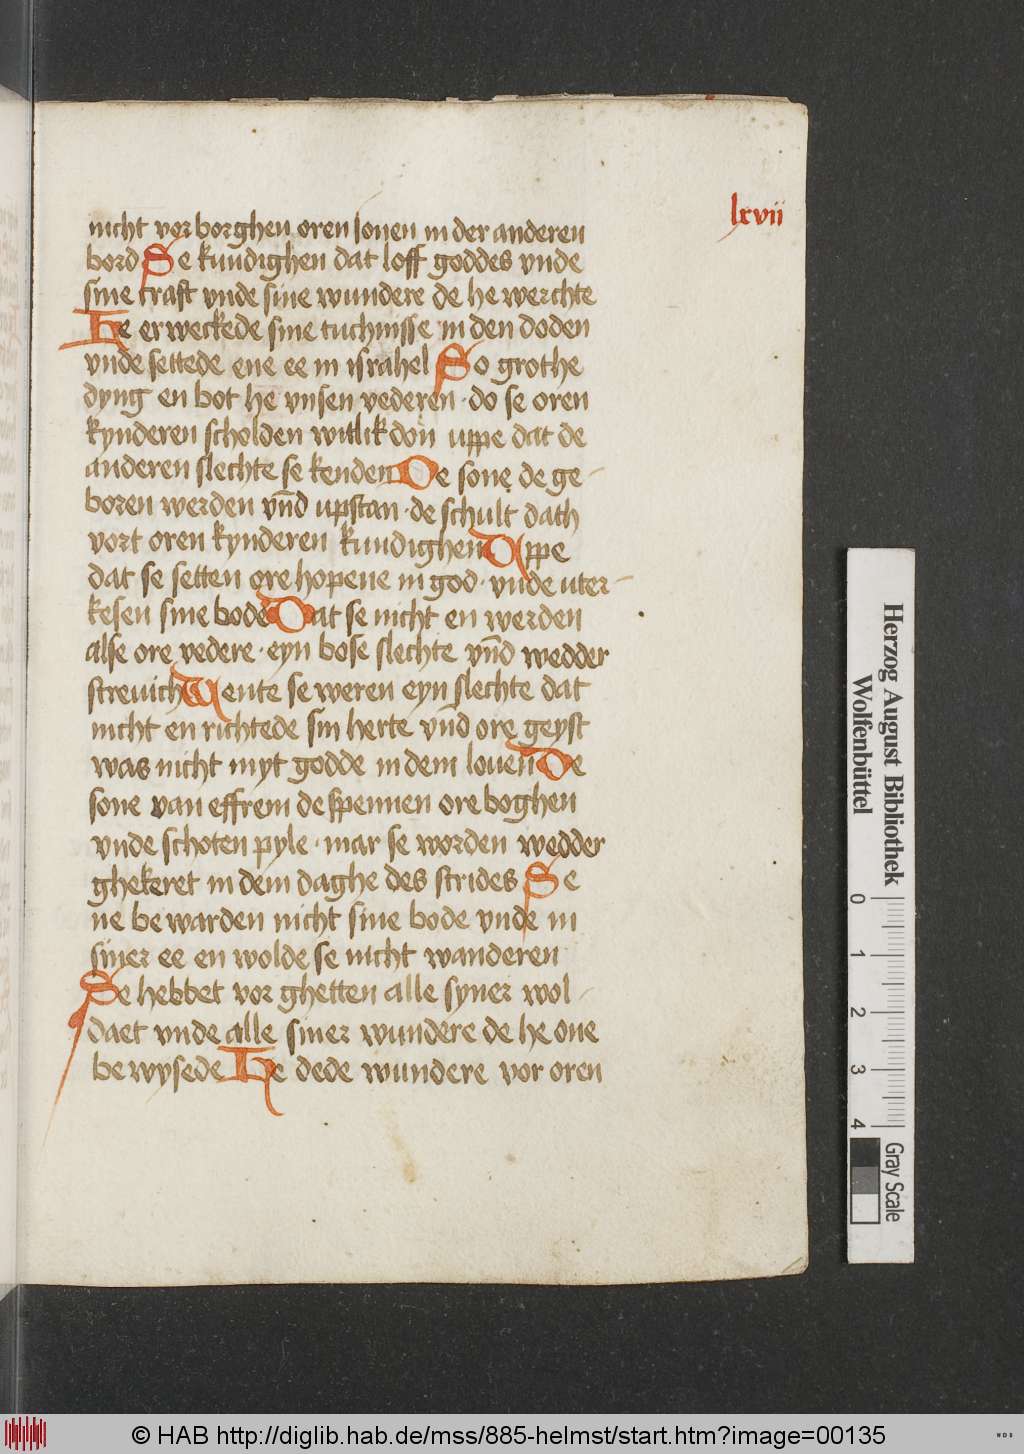 lxvii
nicht vor borghen oren sonen in der anderen
bord Se kundighen dat loff goddes vnde
sine craft vnde sine wundere de he werchte
He erweckede sine tuchnisse in den doden
vnde settede ene ee in israhel So grothe
dyng en bot he vnsen vederen · do se oren
kynderen scholden witlik don uppe dat de
anderen slechte se kenden De sone de ge-
boren werden vn̄d upstan · de schult dath
vort oren kynderen kundighen Uppe
dat se setten ore hopene in god · vnde uter-
kesen sine bode Dat se nicht en werden
alse ore vedere · eyn bose slechte vn̄d wedder
strevich Wente se weren eyn slechte dat
nicht en richtede sin herte vn̄d ore geyst
was nicht myt godde in dem louen De
sone van effrem de spennen ore boghen
vnde schoten pyle · mar se worden wedder
ghekeret in dem daghe des strides Se
ne bewarden nicht sine bode vnde in
siner ee en wolde se nicht wanderen
Se hebbet vor ghetten alle syner wol-
daet vnde alle siner wundere de he one
bewysede He dede wundere vor oren
Herzog August Bibliothek
Wolfenbüttel
0 1 2 3 4
Gray Scale
© HAB http://diglib.hab.de/mss/885-helmst/start.htm?image=00135
WDB